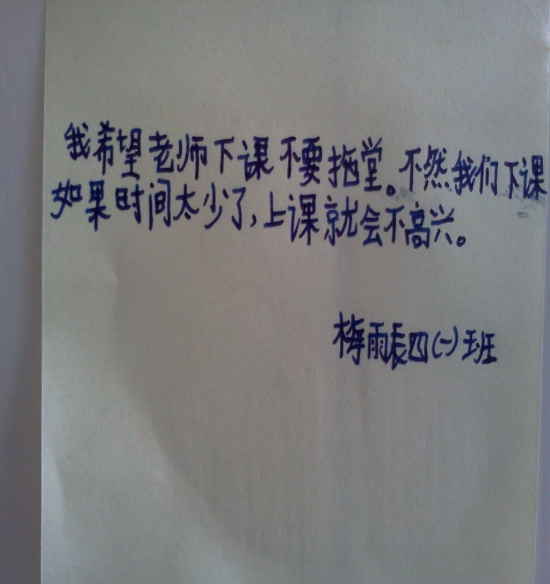 我希望老师下课不要拖堂。不然我们下课
如果时间太少了,上课就会不高兴。
梅雨辰四(一)班